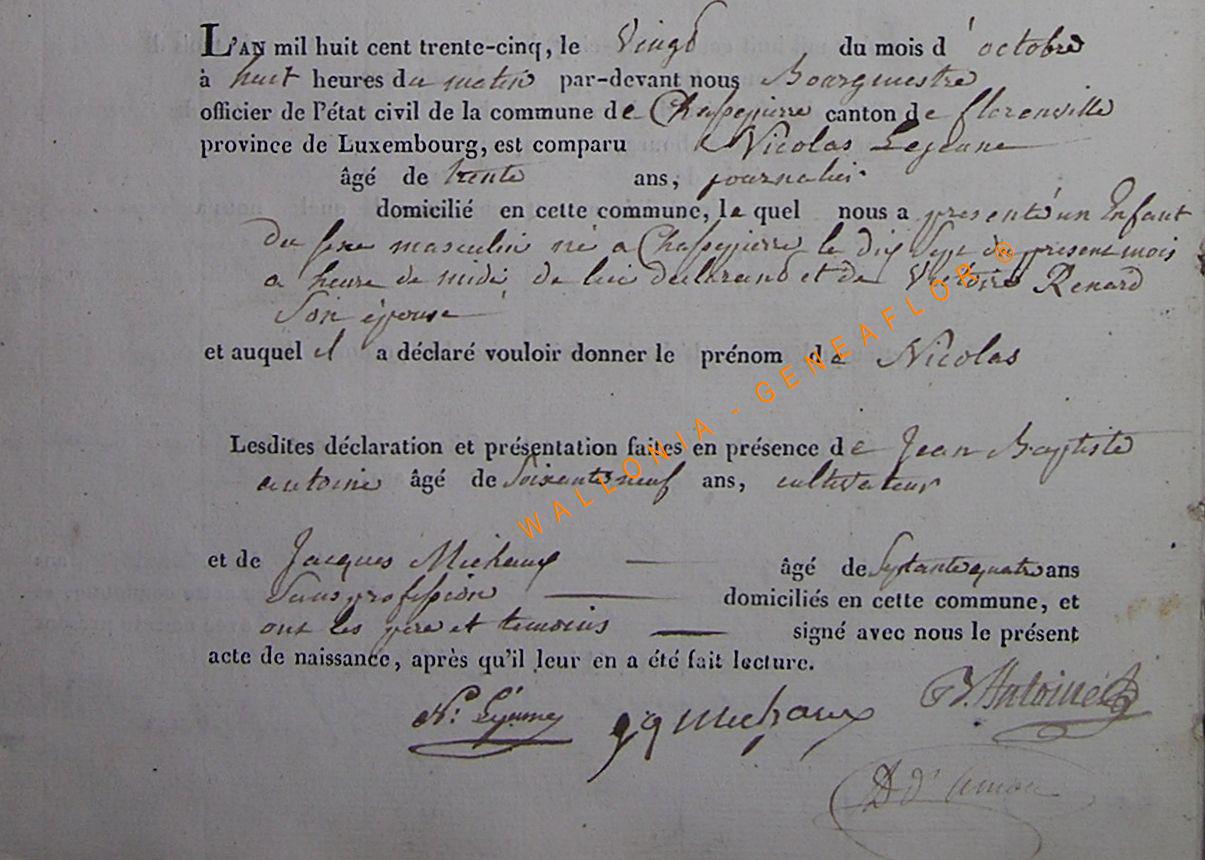 L'AN mil huit cent trente-cinq, le Vingt du mois d'octobre
à huit heures du matin par-devant nous Bourgmestre
officier de l'état civil de la commune de Chassepierre canton de florenville
province de Luxembourg, est comparu Nicolas Lejeune
âgé de trente ans, journalier
domicilié en cette commune, le quel nous a presenté un Enfant
du sexe masculin né a Chassepierre le dix Sept du present mois
a heure de midi de lui déclarant et de Victoire Renard
Son épouse
et auquel il a déclaré vouloir donner le prénom de Nicolas
Lesdites déclaration et présentation faites en présence de Jean Baptiste
antoine âgé de Soixante neuf ans, cultivateur
et de Jacques Michaux âgé de Septante quatre ans
Sans profession domiciliés en cette commune, et
ont les pere et temoins signé avec nous le présent
acte de naissance, après qu'il leur en a été fait lecture.
N. Lejeune
Michaux
Antoine
WALLONIA - GENEAFLOR ®